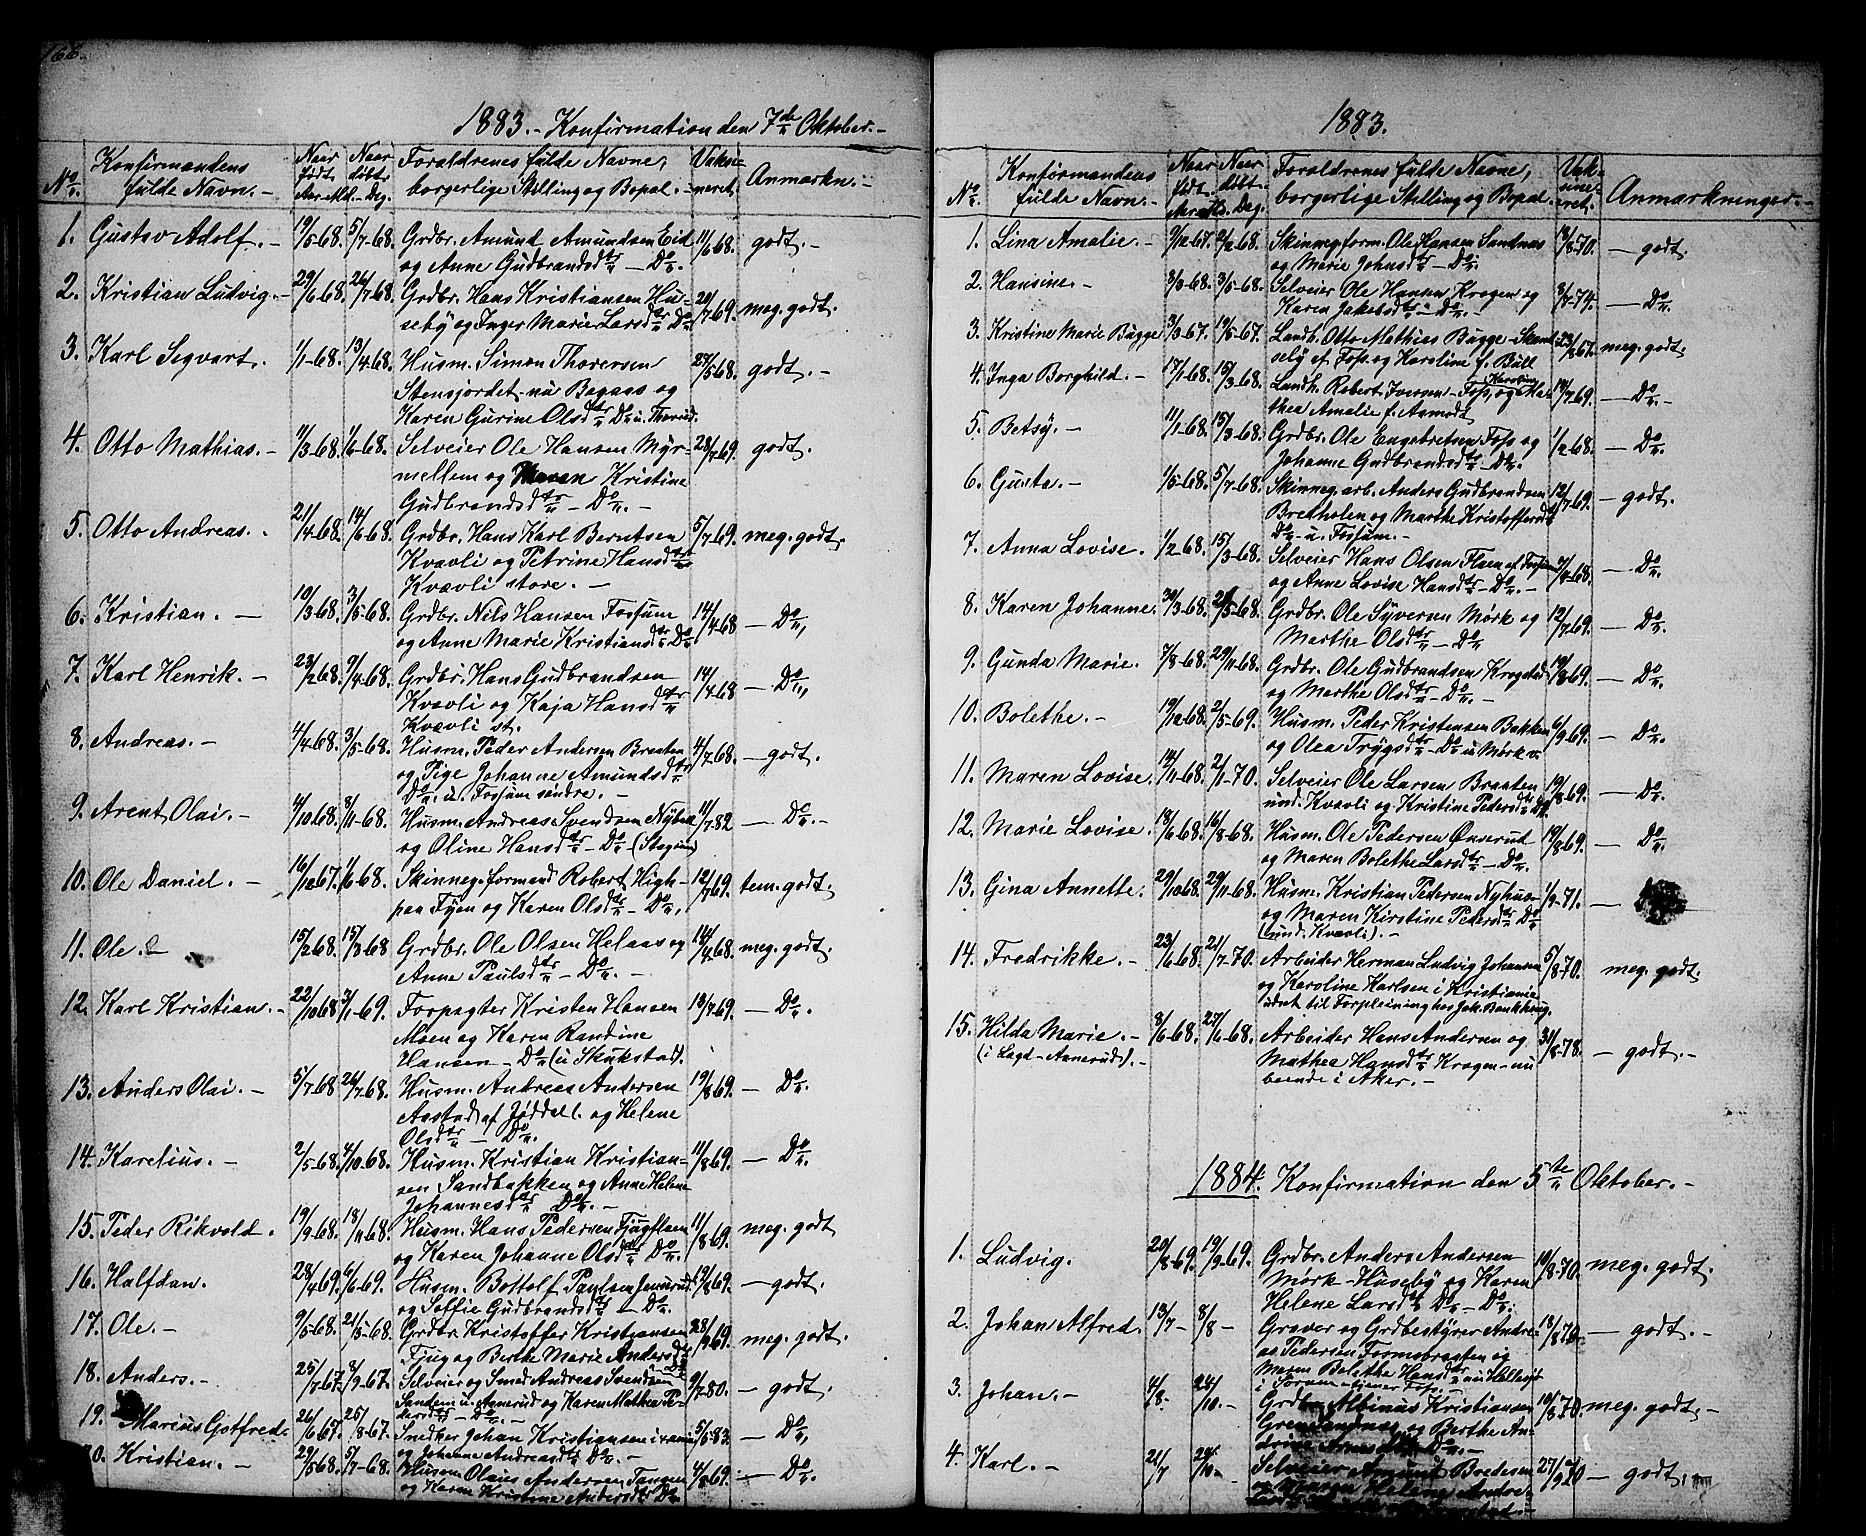 166.
1883. - Konfirmation den 7de Oktober. -
No. Konfirmandens fulde Navn. - Naar født Aar Md. Naar døbt Dag. Forældrenes fulde Navne, borgerlige Stilling og Bopæl. - Vaksineret. Anmærkn. -
1. Gustav Adolf. - 19/5-68. 5/7-68. Grdbr. Amund Amundsen Eid 11/6 68. godt. -
og Anne Gudbrandsdtr - Do.
2. Kristian Ludvig. - 29/6-68. 26/7-68. Grdbr. Hans Kristiansen Hu- 20/7 69. meg. godt.
seby og Inger Marie Larsdtr Do
3. Karl Segvart. 1/1-68. 13/4-68. Husm. Simon Thoresen 27/5 68. godt. -
Stensjordet - nu Bagaas og
Karen Gurine Olsdtr Do u. Thorud.
4. Otto Mathias. - 11/3-68. 1/6-68. Selveier Ole Hansen Myr- 28/7 69. godt.
mellem og Maren Kristine
Gudbrandsdtr - Do. -
5. Otto Andreas. - 21/4-68. 14/6-68. Grdbr. Hans Karl Berntsen 5/7-69. meg. godt.
Kvavli og Petrine Hansdtr
Kvavli store. -
6. Kristian. - 19/3-68. 3/5-68. Grdbr. Nils Hansen Fossum 14/4-68 - Do.
og Anne Marie Kristiansdtr Do
7. Karl Henrik. - 23/2-68. 9/4-68. Grdbr. Hans Gudbrandsen 14/4-68 - Do.
Kvavli og Kaja Hansdtr
Kvavli st.
8. Andreas. - 4/4-68. 3/5-68. Husm. Peder Andersen Braaten 4/7-68. - godt.
og Pige Johanne Amundsdtr
Do. u. Fossum søndre. -
9. Arent Olai. - 4/10 68. 8/11-68. Husm. Andreas Svendsen 11/7-82 - Do. -
og Oline Hansdtr - Do
10. Ole Daniel. - 16/12 67. 1/6-68. Skinneg. formand Robert High- 12/7 69. tem. godt.
paa Fjøen og Karen Olsdtr - Do.
11. Ole. - 15/2-68. 15/3 68 Grdbr. Ole Olsen Helaas og 14/4 68. meg. godt.
Anne Paulsdtr - Do. -
12. Karl Kristian. - 22/10 68 3/1-69. Forpagter Kristen Hansen 13/7-69. - Do.
Moen og Karen Randine
Hansen - Do (u Skukstad).
13. Anders Olai. - 5/7-68 26/7-68. Husm. Andreas Andersen 19/8 69. - Do.
Aastad af Jøddall. og Helene
Olsdtr - Do.
14. Karelius. - 2/5-68. 4/10-68. Husm. Kristian Kristian- 11/8-69. - Do.
sen Sandbakken og Anne Helene
Johannesdtr Do. -
15. Peder Rikvold. 19/9-68. 18/11 68. Husm. Hans Pedersen Tjugflaen 11/8-69. meg. godt
og Karen Johanne Olsdtr Do.
16. Halfdan. 28/4 69. 6/6-69. Husm. Bottolf Paulsen 19/8 69. - godt.
og Soffie Gudbrandsdtr - Do.
17. Ole. - 9/5-68. 21/5-68. Grdbr. Kristoffer Kristiansen 28/9 69. meg. godt.
Tjug og Berthe Marie Andersdtr
18. Anders. - 25/7-67. 8/9-67. Selveier og Smed Andreas Svendsen 9/7-80. - godt.
Sandem u. Aamerud og Karen Mathea Pe-
dersdtr - Do. -
19. Marius Gotfred. 26/6 67. 25/8-67. Snedker Johan Kristiansen 5/6-83. - Do.
og Johanne Andreasdtr Do. -
20. Kristian. - 29/5 68. 5/7-68. Husm. Olaus Andersen Tangen 4/8 69. - Do.
og Karen Kristine Andersdtr Do
1883.
No. Konfirmandens fulde Navn. - Naar født. Naar døbt. Dag. Forældrenes fulde Navne, borgerlige Stilling og Bopæl. Vaksineret. Anmærkninger. -
1. Lina Amalie. - 9/12 67. 2/2-68. Skinneg. form. Ole Hansen Sandnæs 18/8-70. - godt.
og Marie Johnsdtr - Do.
2. Hansine. - 8/3-68. 3/5-68. Selveier Ole Hansen Krogen og 8/7-74. - Do.
Karen Jakobsdtr - Do. -
3. Kristine Marie Bugge 3/3-67. 19/6-67. Landh. Otto Mathias Bugge 23/8 67. meg. godt.
af Fos. og Karoline f. Bull
4. Inga Borghild. - 17/1-68. 15/3-68. Landh. Robert Iversen - Fos, og Karoline 19/7 69. - Do. -
thea Amalie f. Aamodt
5. Betsy. - 11/1-68. 15/3-68. Grdbr. Ole Engebretsen Fos og 1/2-68. - Do.
Johanne Gudbrandsdtr - Do.
6. Gusta. - 1/5-68. 5/7-68. Skinneg. arb. Anders Gudbrandsen 12/7-69. - godt.
Bretholen og Marthe Kristoffersdtr
Do - u. Fossum. -
7. Anna Lovise. 1/2-68. 15/3-68. Selveier Hans Olsen Flaen af Fossum 7/8-68. - Do.
og Anne Lovise Hansdtr - Do. -
8. Karen Johanne. 30/3-68. 21/5-68. Grdbr. Ole Syversen Mørk og 12/7 69. - Do.
Marthe Olsdtr - Do
9. Gunda Marie. 7/8-68. 29/11-68. Grdbr. Ole Gudbrandsen Krogstad 19/8 69. - Do.
og Marthe Olsdtr - Do. -
10. Bolethe. - 19/12-68. 2/5-69. Husm. Peder Kristensen Bakken 6/9-69. - Do.
og Olea Trygsdtr - Do u Mørk v.
11. Maren Lovise. 14/11-68. 2/11-70. Selveier Ole Larsen Braaten 19/8-69. - Do.
und. Kvavli og Kristine Pedersdtr Do
12. Marie Lovise. 18/6-68. 16/8-68. Husm. Ole Pedersen Ønserud 19/8 69. - Do.
og Maren Bolethe Larsdtr - Do.
13. Gina Annette. 29/10 68. 29/11-68. Husm. Kristian Pedersen Nyhus- 1/9-71. -
og Maren Kirstine Pedersdtr Do
(und. Kvavli). -
14. Fredrikke. - 23/6-68. 21/7-70. Arbeider Herman Ludvig Johansen 5/8-70. meg. godt.
og Karoline Karlsen i Kristiania
udsat til Forpleining hos Joh. Bankhaug.
15. Hilda Marie. - 8/6-68. 27/6-68. Arbeider Hans Andersen og 31/8-78. - godt. -
(i Lagd - Aamerud). - Mathea Hansdtr Krogen - nu
boende i Aker. -
1884. Konfirmation den 5te Oktober. -
1. Ludvig. 20/8-69. 19/9-69. Grdbr. Anders Andersen 10/8-70. meg. godt.
Mørk - Huseby og Karen
Helene Larsdtr Do - Do.
2. Johan Alfred. 13/7 - 8/8 - Graver og Grdbestyrer Andre- 18/8 70. - godt. -
as Pedersen Formobraaten og
Maren Bolethe Hansdtr
3. Johan. - 4/8 - 24/10. - Grdbr. Albinus Kristiansen 10/8 70. meg. godt. -
og Berthe An-
drine Do. -
4. Karl. - 21/7 24/10 - Selveier Amund Bredesen 27/9 70 - godt.
og Helene Andre-